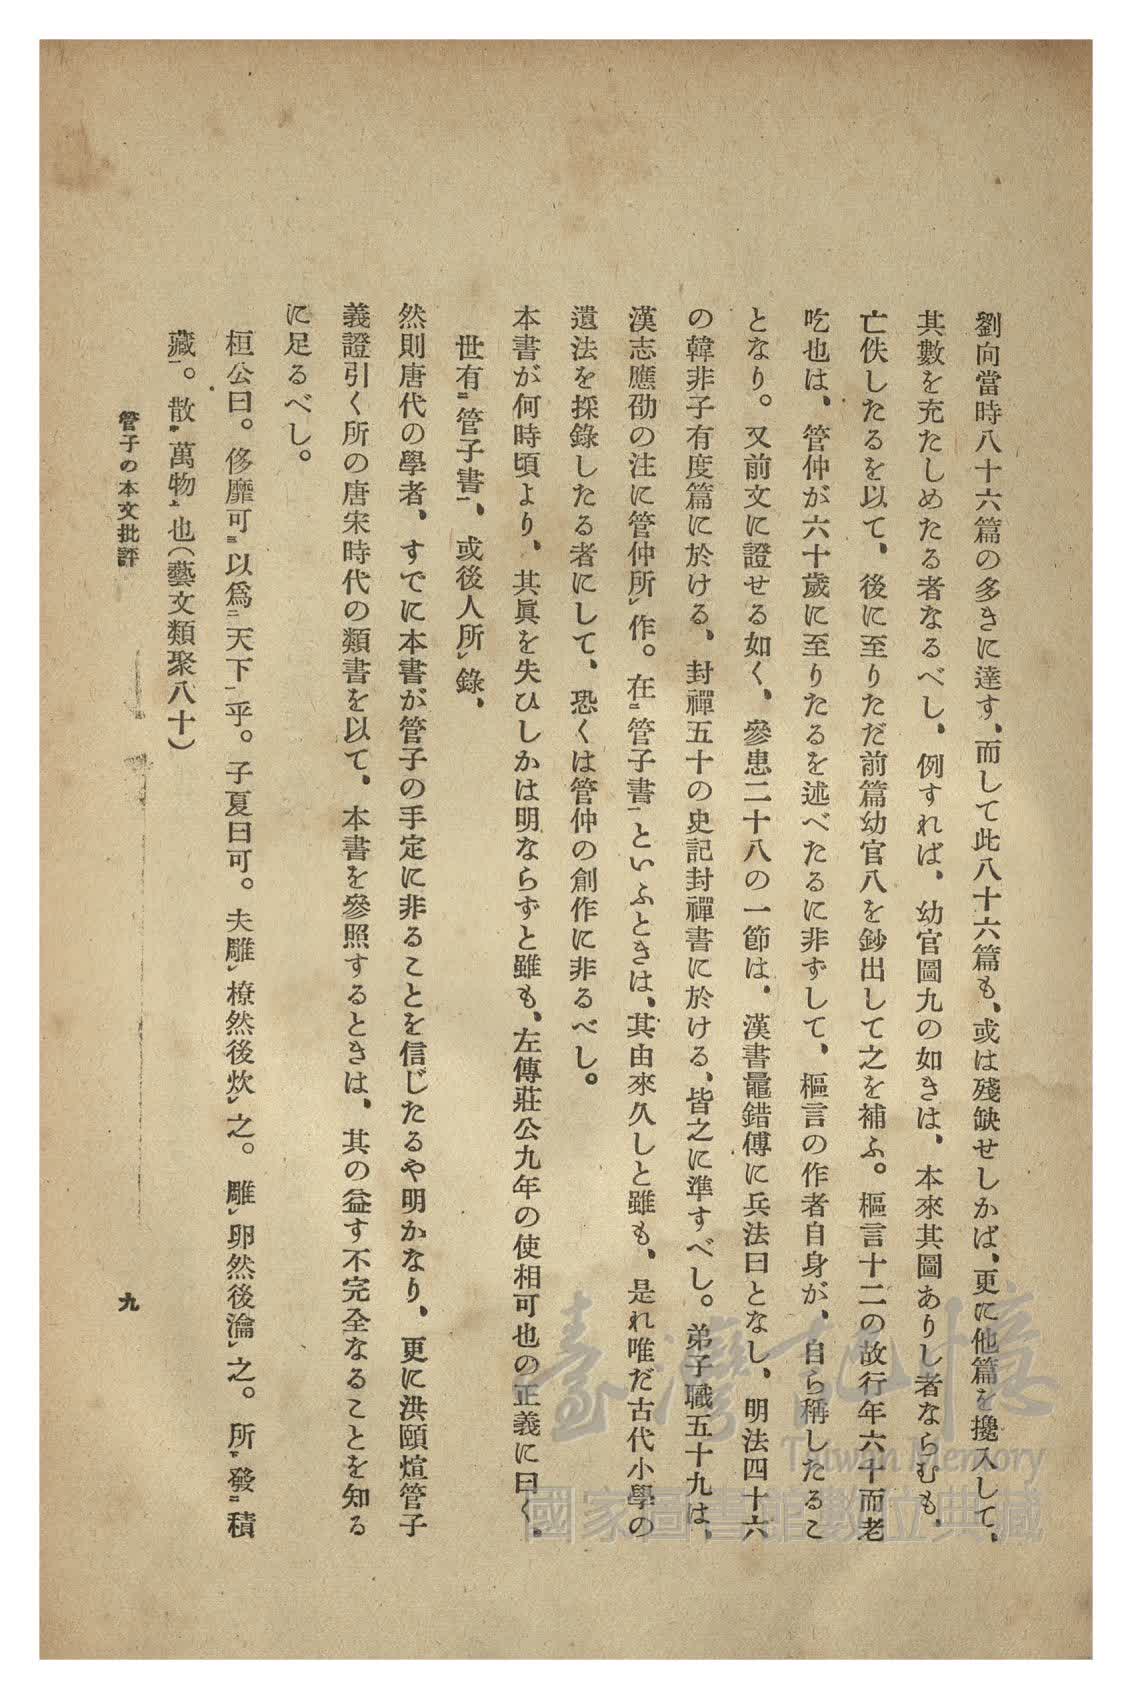 劉向當時八十六篇の多きに達す、而して此八十六篇も、或は殘缺せしかば、更に他篇を攙入して、
其數を充たしめたる者なるべし、例すれば、幼官圖九の如きは、本來其圖ありし者ならむも、
亡佚したるを以て、後に至りただ前篇幼官八を鈔出して之を補ふ。樞言十二の故行年六十而老
吃也は、管仲が六十歲に至りたるを述べたるに非ずして、樞言の作者自身が、自ら稱したるこ
となり。又前文に證せる如く、參患二十八の一節は、漢書鼂錯傅に兵法曰となし、明法四十六
の韓非子有度篇に於ける、封禪五十の史記封禪書に於ける、皆之に準すべし。弟子職五十九は、
漢志應劭の注に管仲所レ作。在二管子書一といふときは、其由來久しと雖も、是れ唯だ古代小學の
遺法を採錄したる者にして、恐くは管仲の創作に非るべし。
本書が何時頃より、其眞を失ひしかは明ならずと雖も、左傳莊公九年の使相可也の正義に曰く、
世有二管子書一、或後人所レ錄、
然則唐代の學者、すでに本書が管子の手定に非ることを信じたるや明かなり、更に洪頤煊管子
義證引く所の唐宋時代の類書を以て、本書を參照するときは、其の益す不完全なることを知る
に足るべし。
桓公曰。侈靡可三以爲二天下一乎。子夏曰可。夫雕レ橑然後炊レ之。雕レ卵然後瀹レ之。所下發二積
藏一。散中萬物上也(藝文類聚八十)
管子の本文批評
九
臺灣記憶
Taiwan Memory
國家圖書館數位典藏